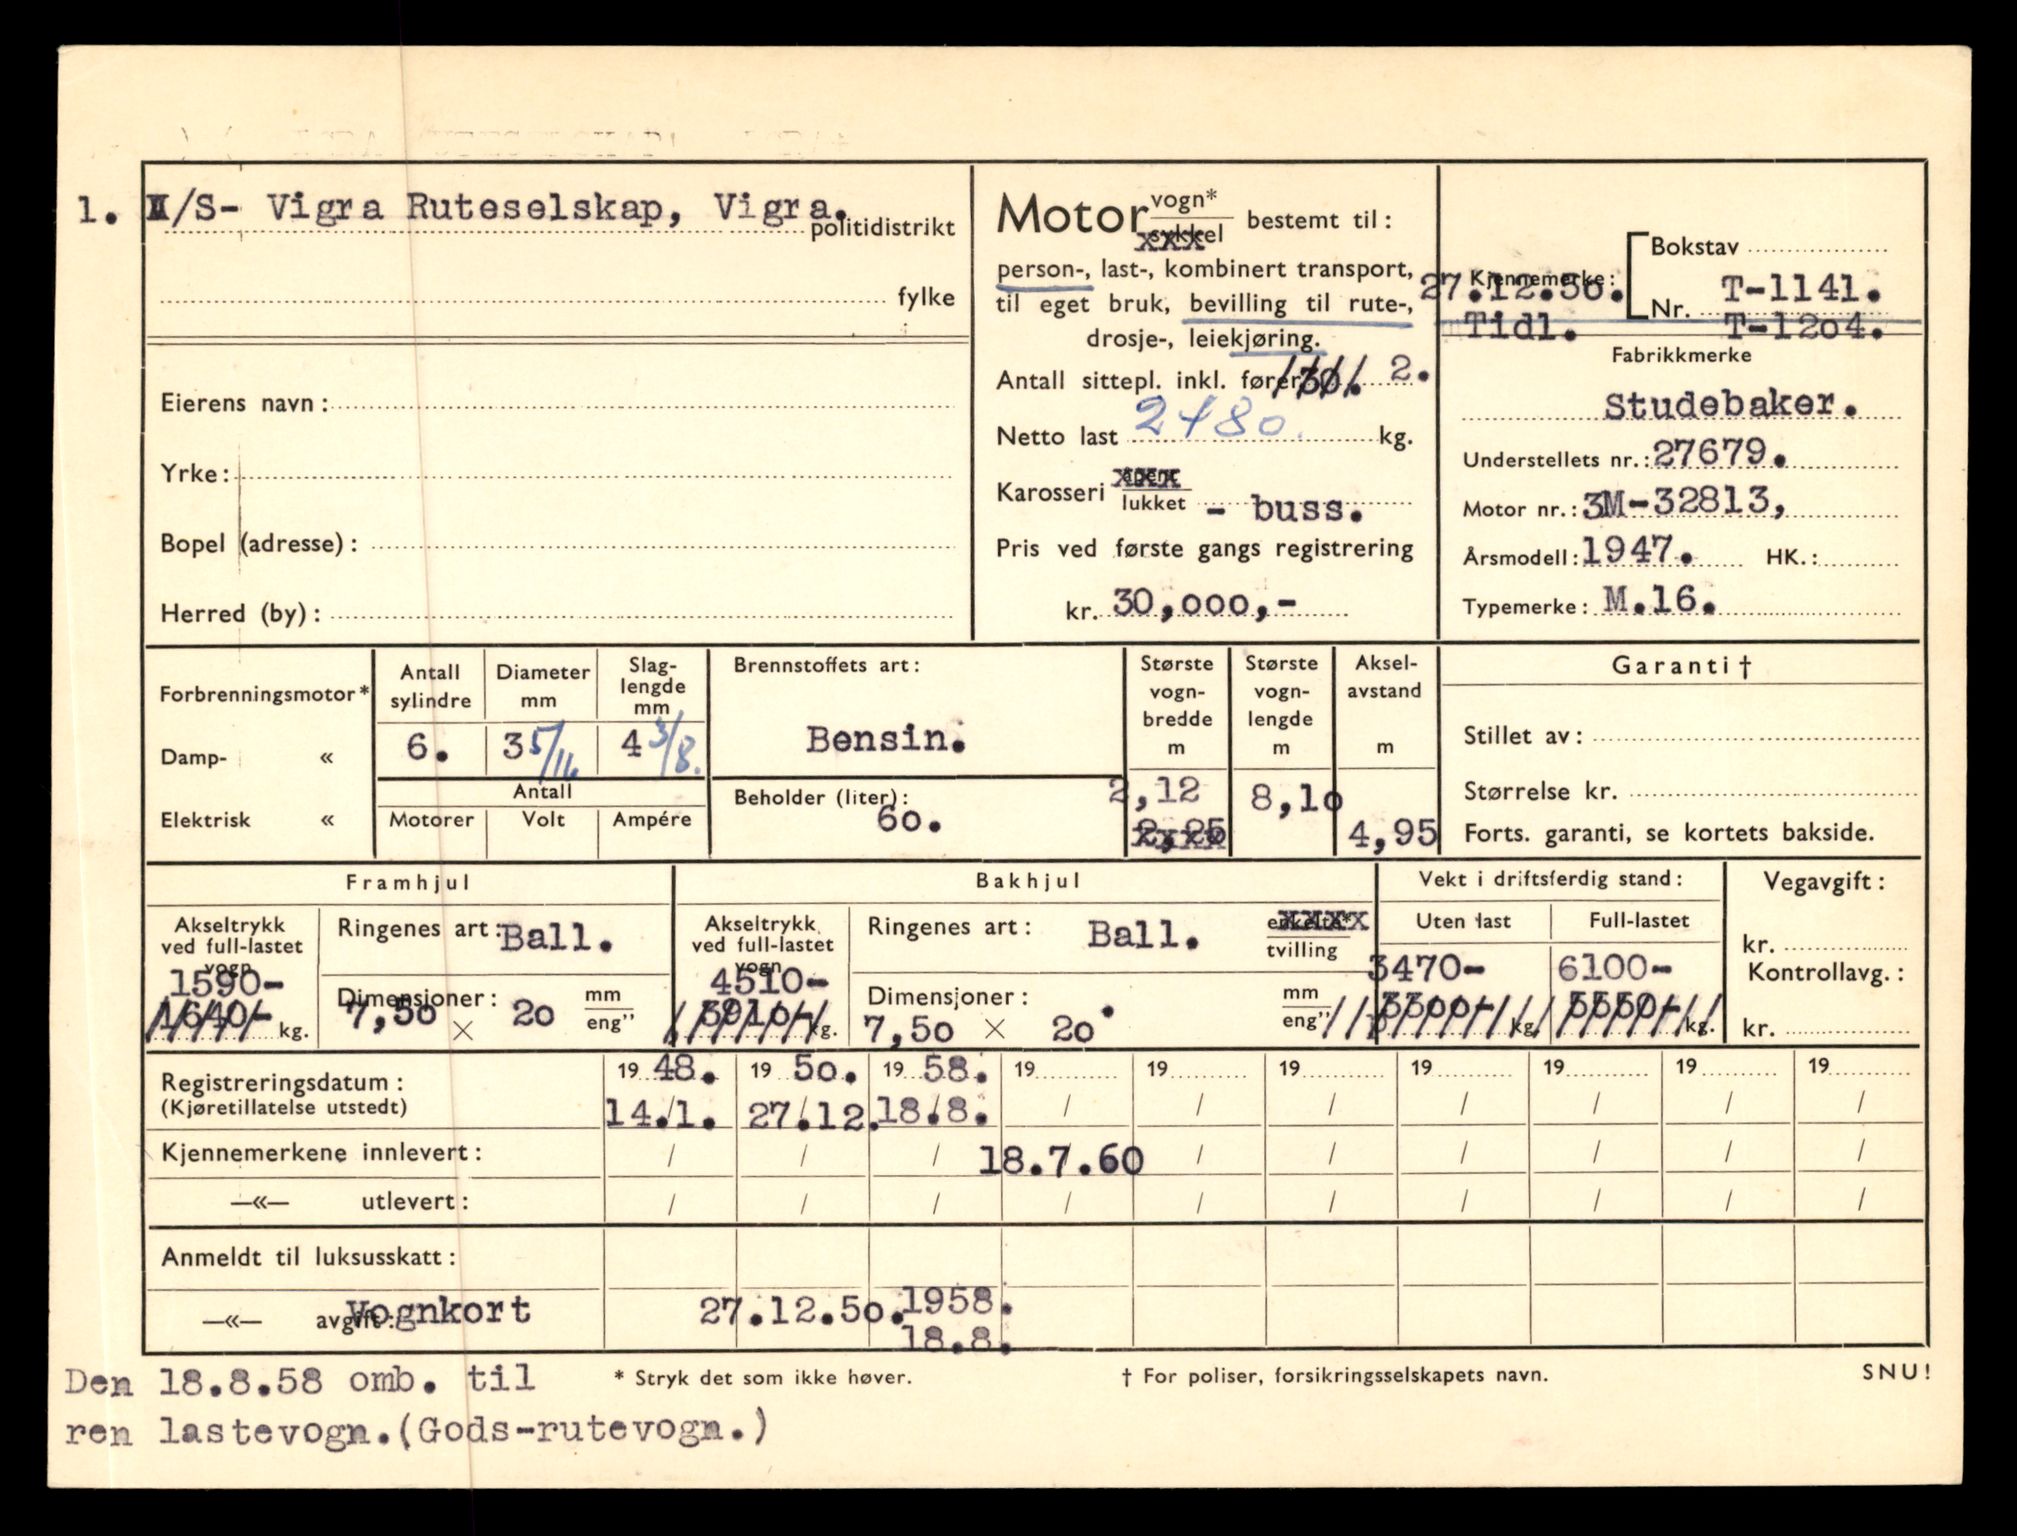 1. I/S- Vigra Ruteselskap, Vigra.
politidistrikt
fylke
Eierens navn:
Yrke:
Bopel (adresse):
Herred (by):
Motor vogn* bestemt til:
sykkel
person-, last-, kombinert transport,
til eget bruk, bevilling til rute-,
drosje-, leiekjøring.
Antall sittepl. inkl. fører 30. 2.
Netto last 2480 kg.
Karosseri åpent
lukket - buss.
Pris ved første gangs registrering
kr. 30,000,-
Bokstav
Kjennemerke:
27.12.50. T-1141.
Nr.
Tidl. T-1204.
Fabrikkmerke
Studebaker.
Understellets nr.: 27679.
Motor nr.: 3M-32813,
Årsmodell: 1947. HK.:
Typemerke: M.16.
Forbrenningsmotor*
Damp- «
Elektrisk «
Antall sylindre
6.
Diameter mm
3 5/16
Slag-
lengde
mm
4 3/8.
Antall
Motorer Volt Ampére
Brennstoffets art:
Bensin.
Beholder (liter):
60.
Største
vogn-
bredde
m
2,12
2,25
Største
vogn-
lengde
m
8,10
Aksel-
avstand
m
4,95
Garanti †
Stillet av:
Størrelse kr.
Forts. garanti, se kortets bakside.
Framhjul
Akseltrykk
ved full-lastet
vogn
1590-
1640- kg.
Ringenes art: Ball.
Dimensjoner: mm
7,50 × 20 eng"
Bakhjul
Akseltrykk
ved full-lastet
vogn
4510-
3910- kg.
Ringenes art: Ball. enkelte*
tvilling
Dimensjoner: mm
7,50 × 20 eng"
Vekt i driftsferdig stand:
Uten last Full-lastet
3470- 6100-
3300- kg. 5550- kg.
Vegavgift:
kr.
Kontrollavg.:
kr.
Registreringsdatum: 19 48. 19 50. 19 58. 19 19 19 19 19 19 19
(Kjøretillatelse utstedt) 14./1. 27/12. 18/8. / / / / / / /
Kjennemerkene innlevert: / / / 18.7.60 / / / / / /
—«— utlevert: / / / / / / / / / /
Anmeldt til luksusskatt:
—«— avgift: Vognkort 27.12.50. 1958.
18.8.
* Stryk det som ikke høver.
† For poliser, forsikringsselskapets navn.
SNU!
Den 18.8.58 omb. til
ren lastevogn.(Gods-rutevogn.)